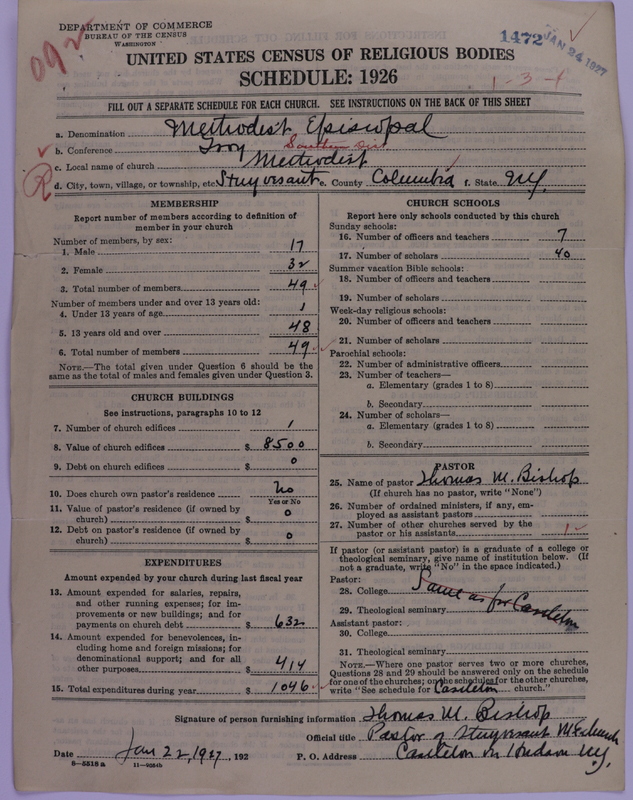 DEPARTMENT OF COMMERCE
BUREAU OF THE CENSUS
WASHINGTON
1472 JAN 24 1927
UNITED STATES CENSUS OF RELIGIOUS BODIES
SCHEDULE: 1926
1-3-4
FILL OUT A SEPARATE SCHEDULE FOR EACH CHURCH. SEE INSTRUCTIONS ON THE BACK OF THIS SHEET
a. Denomination Methodist Episcopal
b. Conference Troy Southern Dist
c. Local name of church Methodist
R d. City, town, village, or township, etc Stuyvesant e. County Columbia f. State N.Y.
MEMBERSHIP
Report number of members according to definition of
member in your church
Number of members, by sex:
1. Male 17
2. Female 32
3. Total number of members 49
Number of members under and over 13 years old:
4. Under 13 years of age 1
5. 13 years old and over 48
6. Total number of members 49
NOTE.—The total given under Question 6 should be the
same as the total of males and females given under Question 3.
CHURCH BUILDINGS
See instructions, paragraphs 10 to 12
7. Number of church edifices 1
8. Value of church edifices $ 8500
9. Debt on church edifices $ 0
10. Does church own pastor's residence No
Yes or No
11. Value of pastor's residence (if owned by
church) $ 0
12. Debt on pastor's residence (if owned by
church) $ 0
EXPENDITURES
Amount expended by your church during last fiscal year
13. Amount expended for salaries, repairs,
and other running expenses; for im-
provements or new buildings; and for
payments on church debt $ 632
14. Amount expended for benevolences, in-
cluding home and foreign missions; for
denominational support; and for all
other purposes $ 414
15. Total expenditures during year $ 1046
CHURCH SCHOOLS
Report here only schools conducted by this church
Sunday schools:
16. Number of officers and teachers 7
17. Number of scholars 40
Summer vacation Bible schools:
18. Number of officers and teachers
19. Number of scholars
Week-day religious schools:
20. Number of officers and teachers
21. Number of scholars
Parochial schools:
22. Number of administrative officers
23. Number of teachers—
a. Elementary (grades 1 to 8)
b. Secondary
24. Number of scholars—
a. Elementary (grades 1 to 8)
b. Secondary
PASTOR
25. Name of pastor Thomas M. Bishop
(If church has no pastor, write "None")
26. Number of ordained ministers, if any, em-
ployed as assistant pastors
27. Number of other churches served by the
pastor or his assistants 1
If pastor (or assistant pastor) is a graduate of a college or
theological seminary, give name of institution below. (If
not a graduate, write "No" in the space indicated.)
Pastor:
28. College Same as for Castleton
29. Theological seminary
Assistant pastor:
30. College
31. Theological seminary
NOTE.—Where one pastor serves two or more churches,
Questions 28 and 29 should be answered only on the schedule
for one of the churches; on the schedules for the other churches,
write "See schedule for Castleton church."
Signature of person furnishing information Thomas M. Bishop
Official title Pastor of Stuyvesant M E church
Date Jan 22, 1927, 192 P. O. Address Castleton on Hudson N.Y.
8-5318a 11-9284b